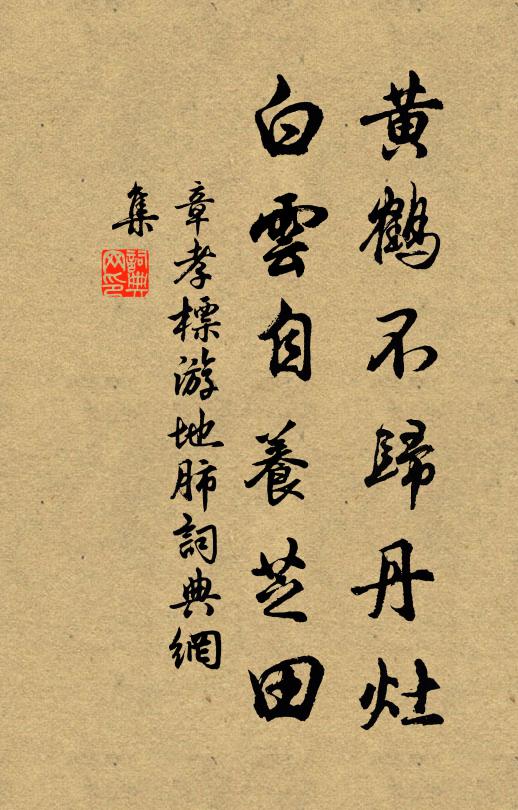 黃鶴不歸丹灶
白雲自養芝田
章孝標游地肺詞典網
集
詞典
网印